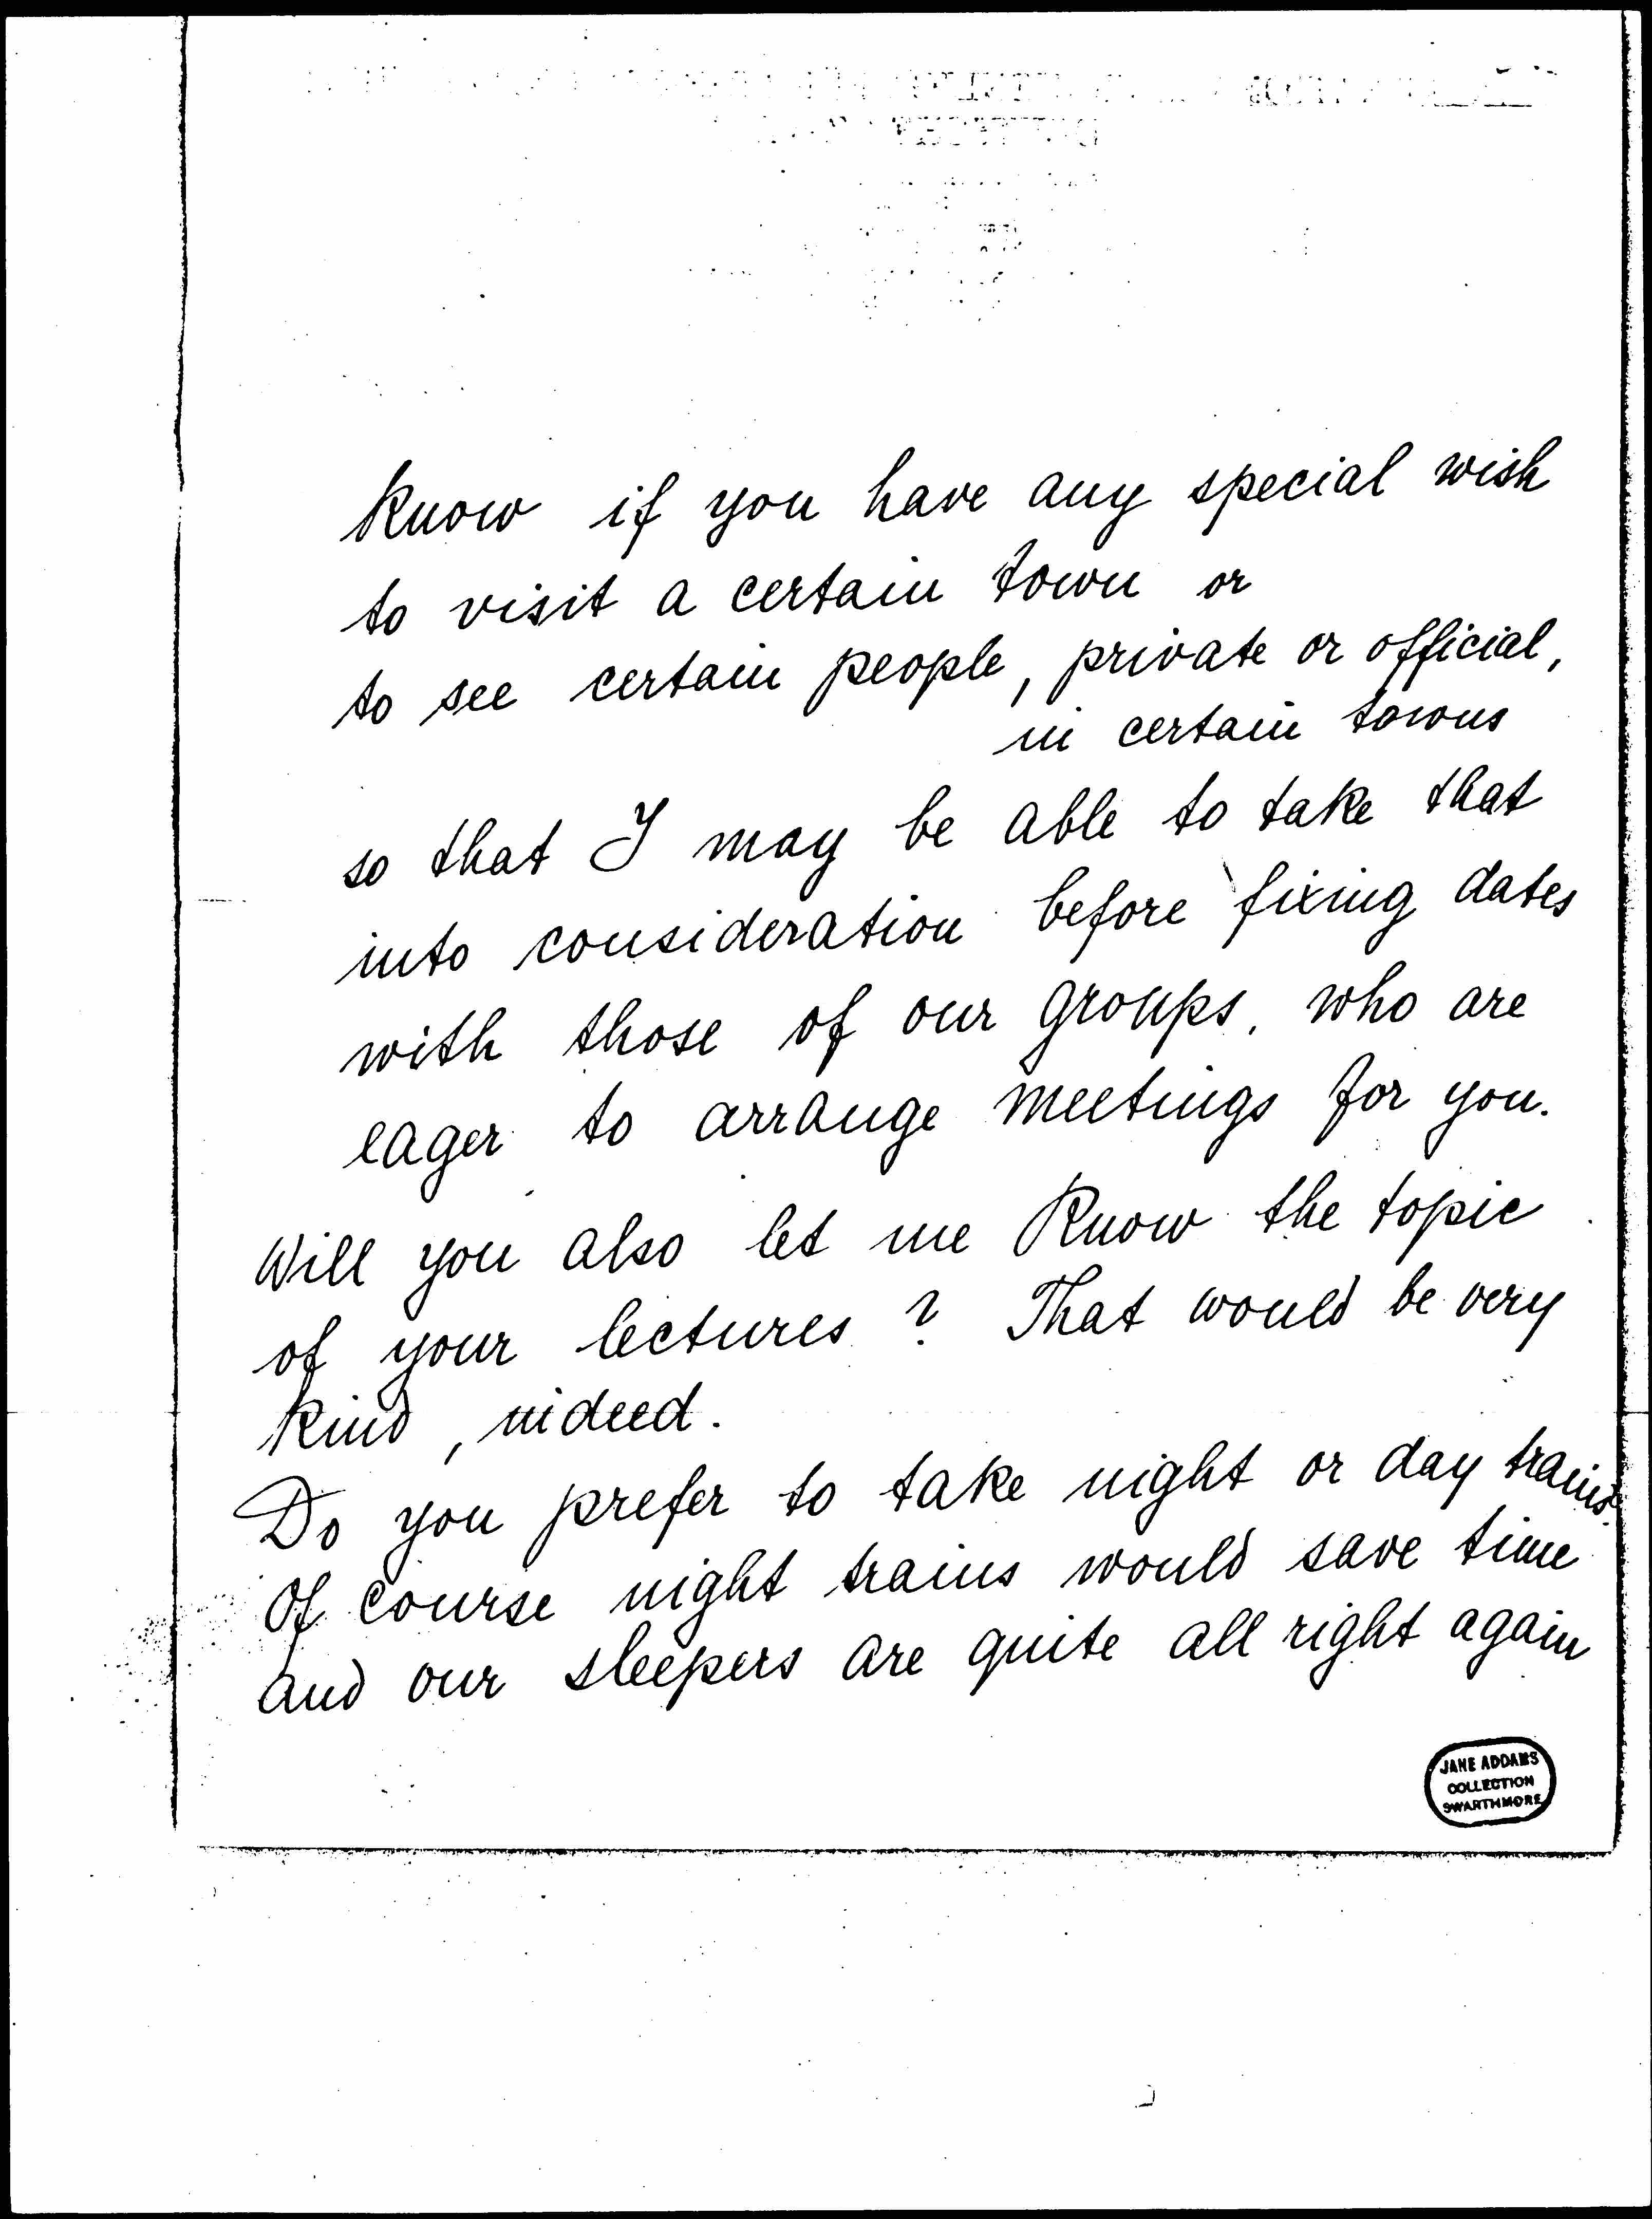 know if you have any special wish
to visit a certain town or
to see certain people, private or official,
in certain towns
so that I may be able to take that
into consideration before fixing dates
with those of our groups, who are
eager to arrange meetings for you.
Will you also let me know the topic
of your lectures? That would be very
kind, indeed.
Do you prefer to take night or day trains.
Of course night trains would save time
and our sleepers are quite all right again
JANE ADDAMS
COLLECTION
SWARTHMORE